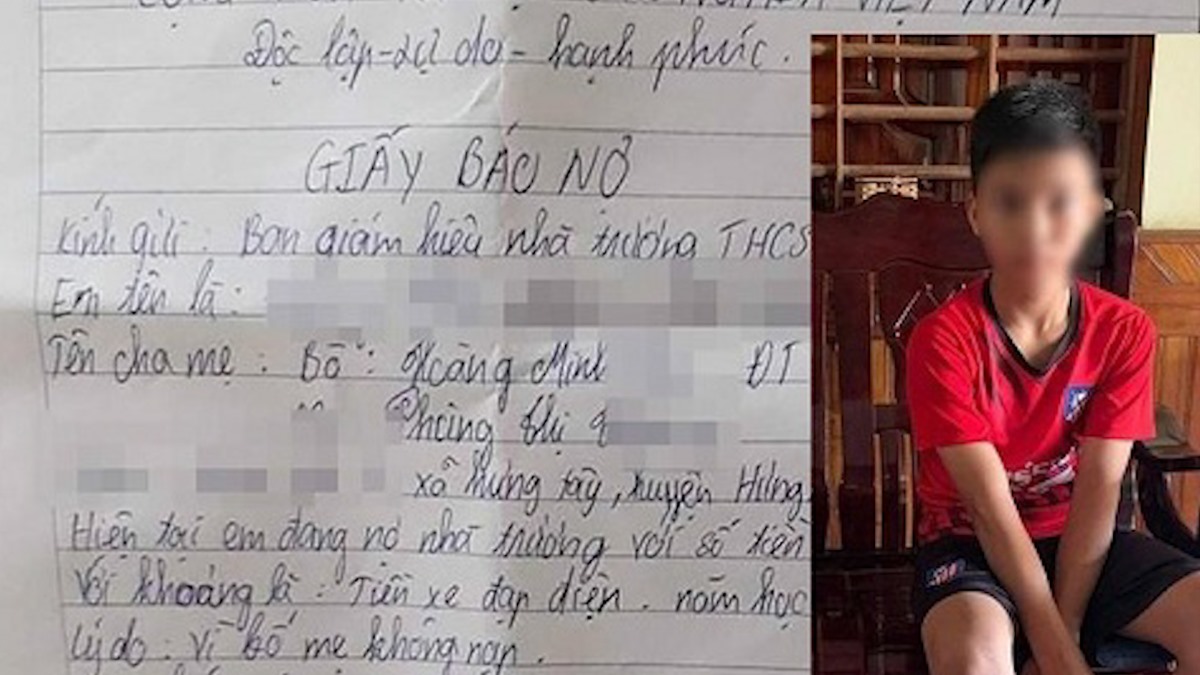 VIỆT NAM
Độc lập - tự do - hạnh phúc.
GIẤY BÁO NỢ
Kính gửi: Ban giám hiệu nhà trường THCS
Em tên là:
Tên cha mẹ: Bố: Hoàng Minh ĐT
Phùng thị
xã Hưng tây, huyện Hưng
Hiện tại em đang nợ nhà trường với số tiền
Với khoảng là: Tiền xe đạp điện. năm học
Lý do: Vì bố mẹ không nạp.